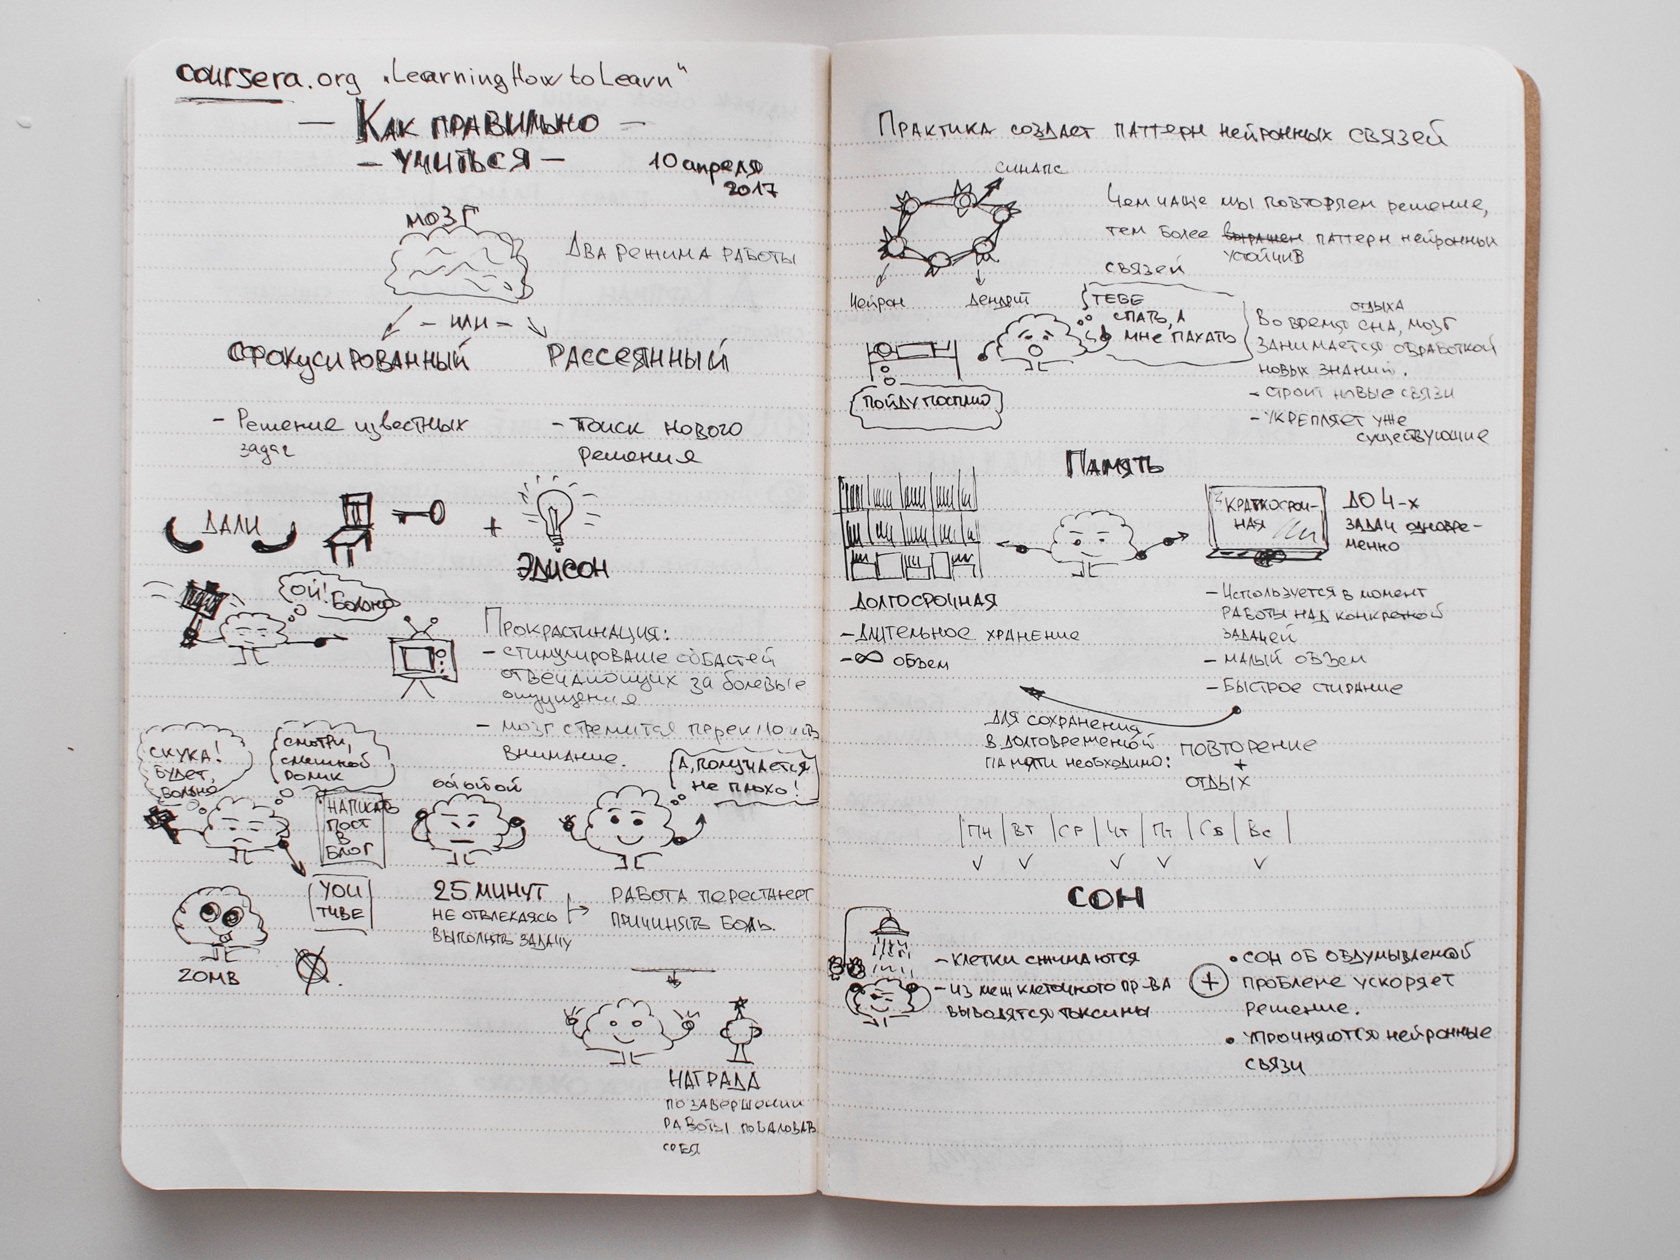 coursera.org „Learning How to Learn"
— Как правильно —
— учиться —
10 апреля
2017
мозг
Два режима работы
— или —
Сфокусированный
Рассеянный
- Решение известных
задач
- поиск нового
решения
Дали
+
Эдисон
Ой!
Больно
Прокрастинация:
- стимулирование областей
отвечающих за болевые
ощущения
- мозг стремится
внимание.
Скука!
Будет
больно
смотри,
смешной
ролик
Написать
пост
в
блог
You
Tube
ZOMB
ой ой ой
А, получается
не плохо!
25 минут
не отвлекаясь
выполнять задачу
Работа перестанет
причинять боль.
Награда
по завершении
работы побаловать
себя
Практика создает паттерн нейронных связей
синапс
нейрон
дендрит
Чем чаще мы повторяем решение,
тем более выражен паттерн нейронных
устойчив
связей
Тебе
спать, а
мне пахать
Пойду посплю
отдыха
Во время сна, мозг
занимается обработкой
новых знаний.
- строит новые связи
- укрепляет уже
существующие
Память
Долгосрочная
- длительное хранение
- ∞ объем
Краткосроч-
ная
до 4-х
задач одновре-
менно
- Используется в момент
работы над конкретной
задачей
- малый объем
- быстрое стирание
для сохранения
в долговременной
памяти необходимо:
повторение
+
отдых
Пн Вт Ср Чт Пт Сб Вс
✓ ✓ ✓ ✓ ✓
Сон
- клетки сжимаются
- из межклеточного пр-ва
выводятся токсины
+
• сон об обдумываемой
проблеме ускоряет
решение.
• упрочняются нейронные
связи